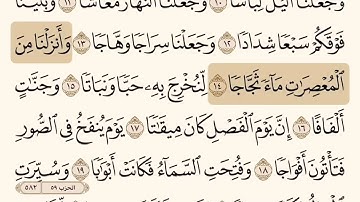 وَجَعَلْنَا ٱلَّيْلَ لِبَاسًا ١٠ وَجَعَلْنَا ٱلنَّهَارَ مَعَاشًا ١١ وَبَنَيْنَا
فَوْقَكُمْ سَبْعًا شِدَادًا ١٢ وَجَعَلْنَا سِرَاجًا وَهَّاجًا ١٣ وَأَنزَلْنَا مِنَ
ٱلْمُعْصِرَٰتِ مَآءً ثَجَّاجًا ١٤ لِّنُخْرِجَ بِهِۦ حَبًّا وَنَبَاتًا ١٥ وَجَنَّٰتٍ
أَلْفَافًا ١٦ إِنَّ يَوْمَ ٱلْفَصْلِ كَانَ مِيقَٰتًا ١٧ يَوْمَ يُنفَخُ فِى ٱلصُّورِ
فَتَأْتُونَ أَفْوَاجًا ١٨ وَفُتِحَتِ ٱلسَّمَآءُ فَكَانَتْ أَبْوَٰبًا ١٩ وَسُيِّرَتِ
الحزب ٥٩ ٥٨٢